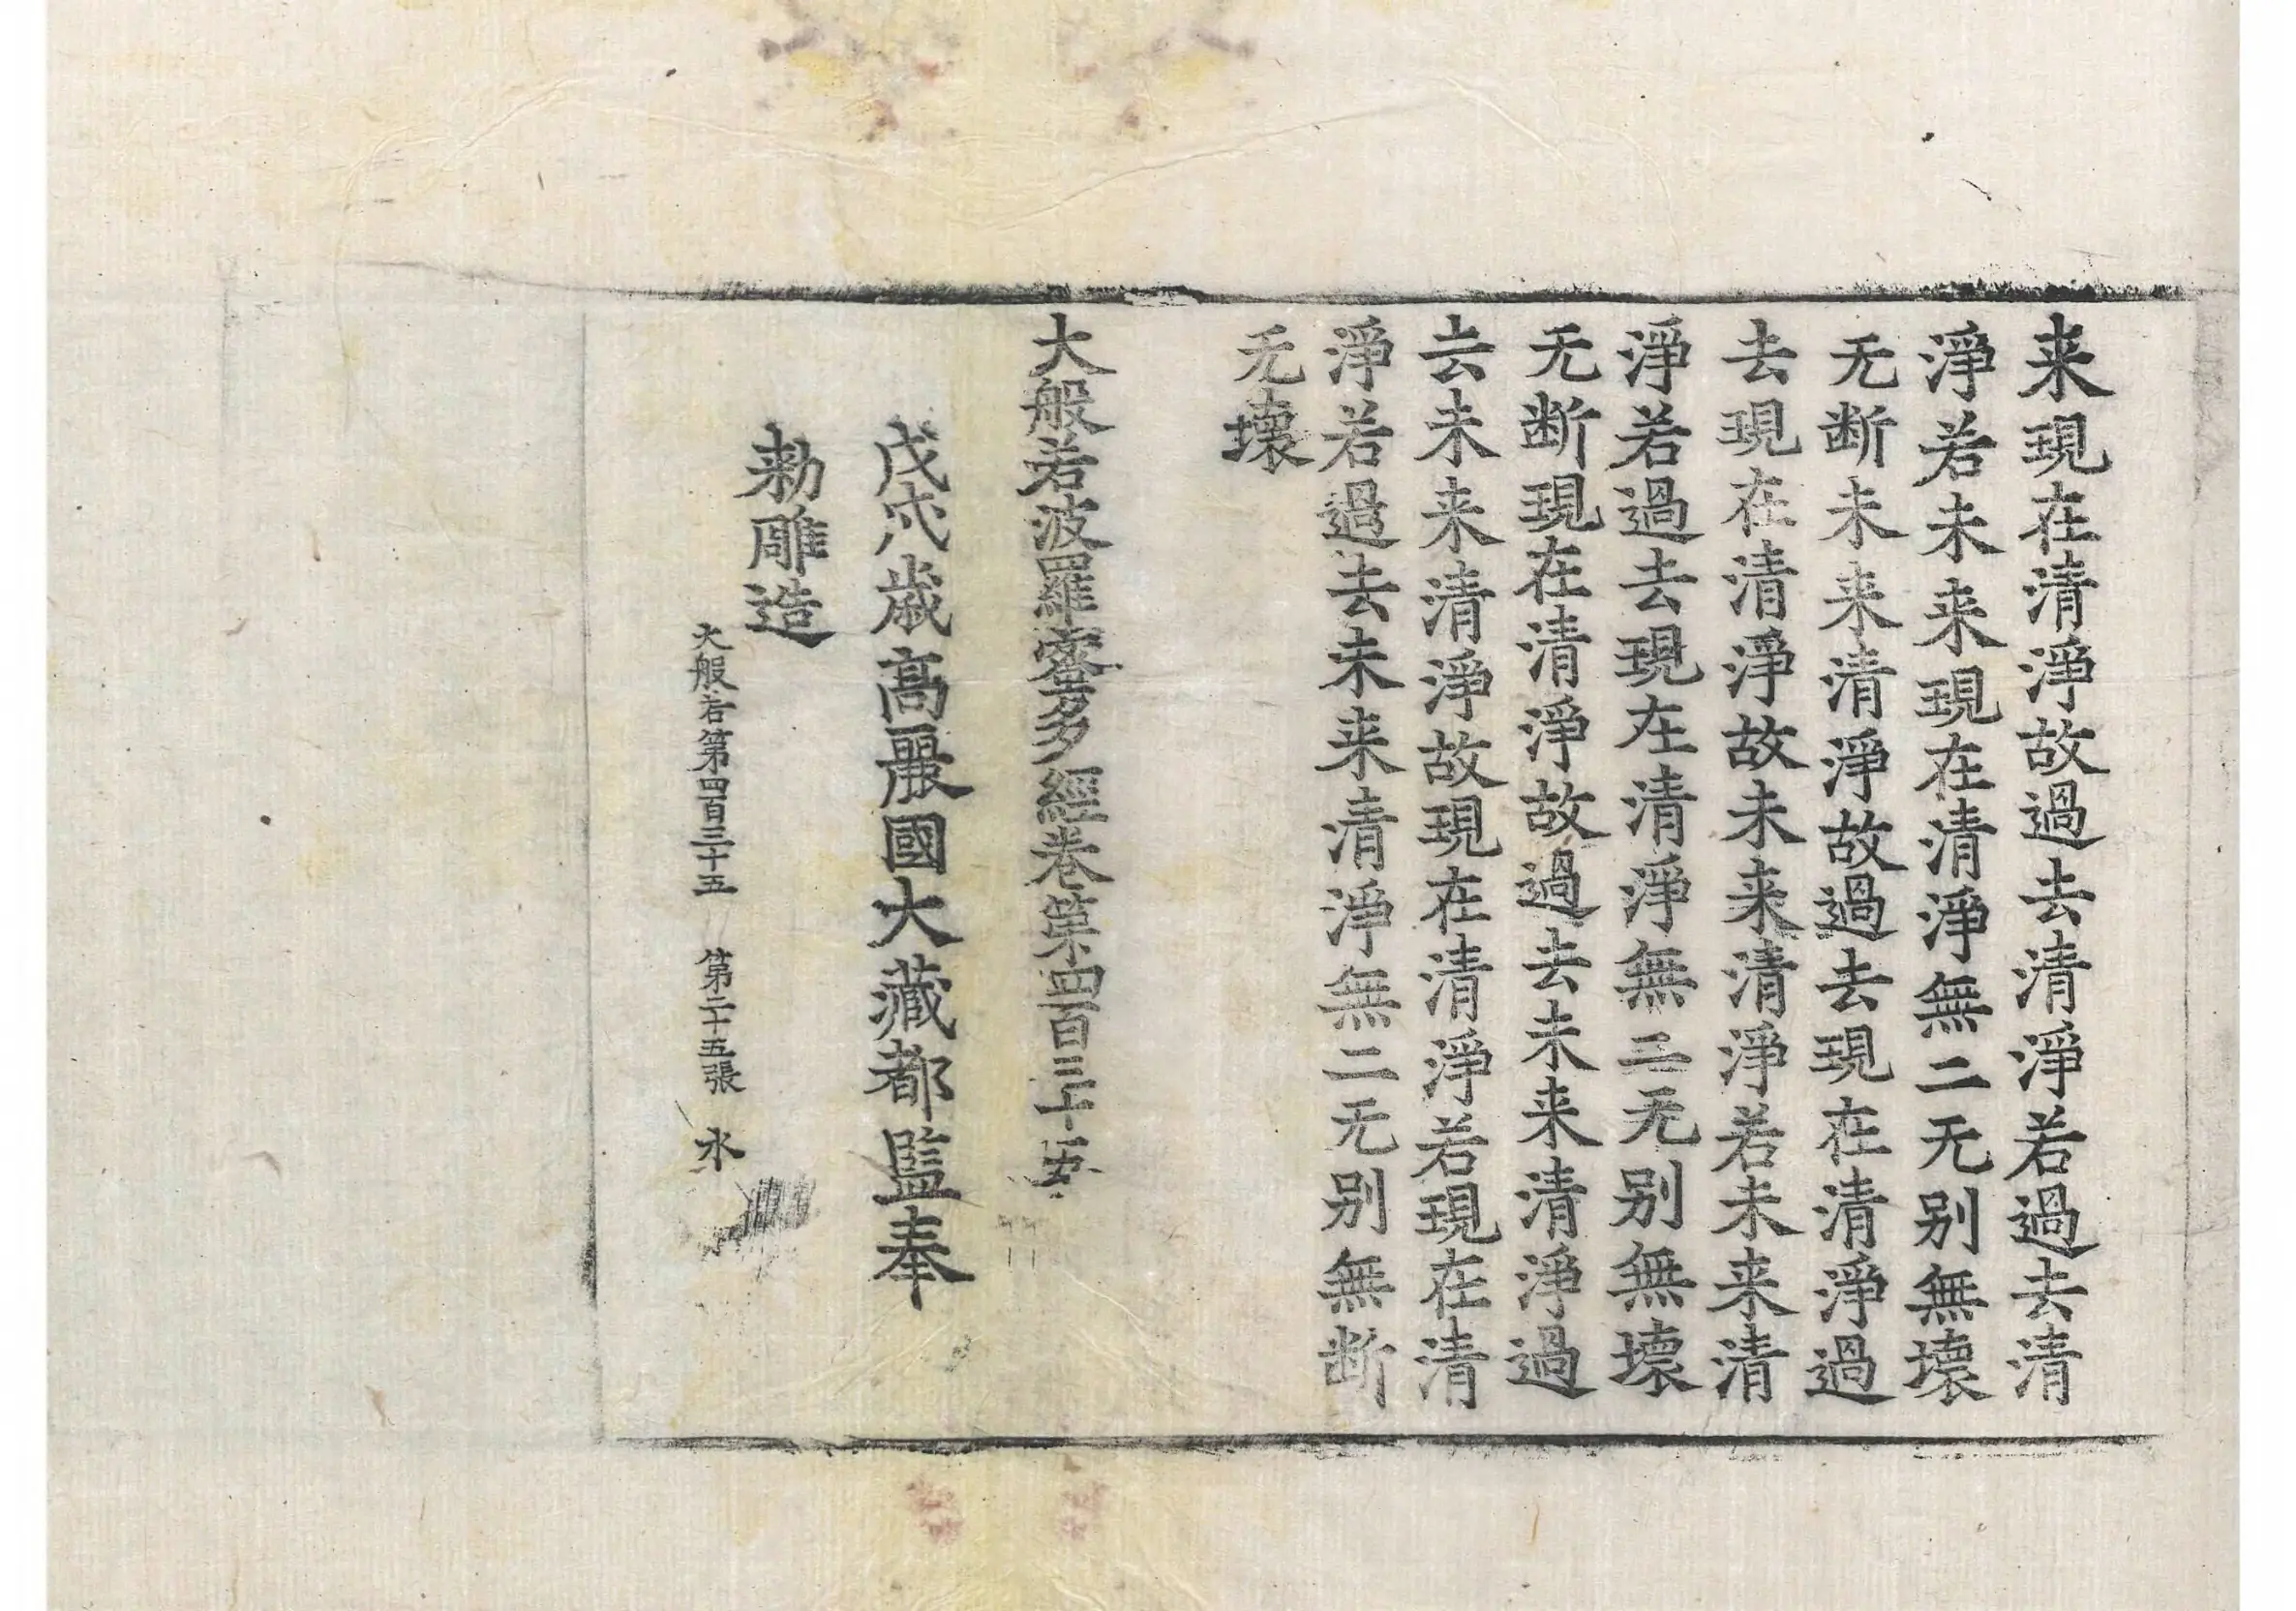 来現在清淨故過去清淨若過去清
淨若未来現在清淨無二无别無壞
无断未来清淨故過去現在清淨過
去現在清淨故未来清淨若未来清
淨若過去現在清淨無二无别無壞
无断現在清淨故過去未来清淨過
去未来清淨故現在清淨若現在清
淨若過去未来清淨無二无别無断
无壞
大般若波羅蜜多經卷第四百三十五
戊戌歲高麗國大藏都監奉
勑雕造
大般若第四百三十五 第二十五張 水